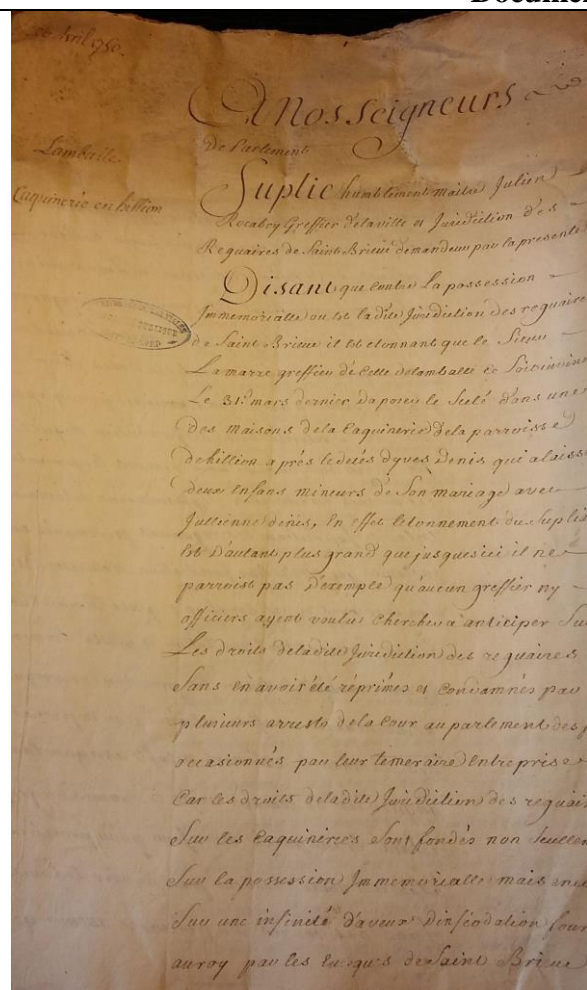 Documen
avril 1760
Lambaile
Caquinerie en hillion
A Nosseigneurs
De Parlement
Suplie humblement maitre Julien
Rocabey Greffier de la ville et Juridiction des
Reguaires de Saint Brieuc demandeur par la presente
Disant que contre La possession
Immemorialle ou est la dite Juridiction des reguaire
de Saint Brieuc il est etonnant que le Sieur
Lamarre greffier de Celle delamballe se Soit
Le 31e mars dernier d'aposer le Selé dans une
des maisons dela Caquinerie dela parroisse
dehillion aprés le decés dyves Denis qui a laissé
deux Enfans mineurs de Son mariage avec
Jullienne denis, En effet letonnement du Suplia
Est D'autant plus grand que jusques ici il ne
parroist pas D'exemple qu'aucun greffier ny
officiers ayent voulu Chercher a anticiper Sur
Les droits deladite Juridiction des reguaires
Sans en avoir été réprimés et Condamnés par
plusieurs arrests dela Cour au parlement des
occasionnés par leur temeraire Entreprise
Car les droits deladite Juridiction des reguair
Sur les Caquineries Sont fondés non Seullem
Sur la possession Immemorialle mais enco
Sur une infinité d'aveux D'inféodation four
auroy par les Evesques de Saint Brieuc